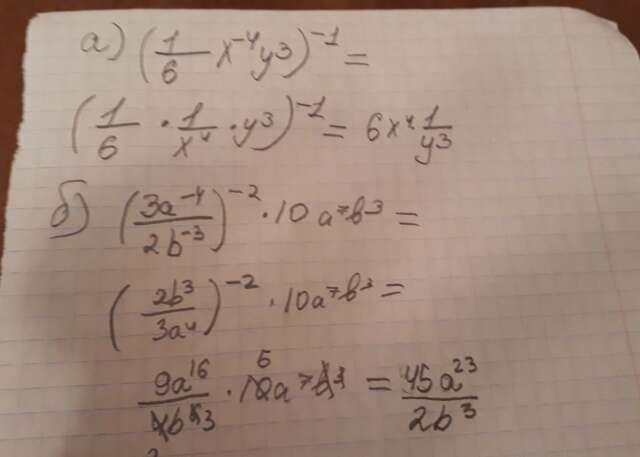 а) (1/6 x⁻⁴y³)⁻¹ =
(1/6 · 1/x⁴ · y³)⁻¹ = 6x⁴ 1/y³
б) (3a⁻⁴/2b⁻³)⁻² · 10a⁷b³ =
(2b³/3a⁴)⁻² · 10a⁷b³ =
= 45a²³/2b³